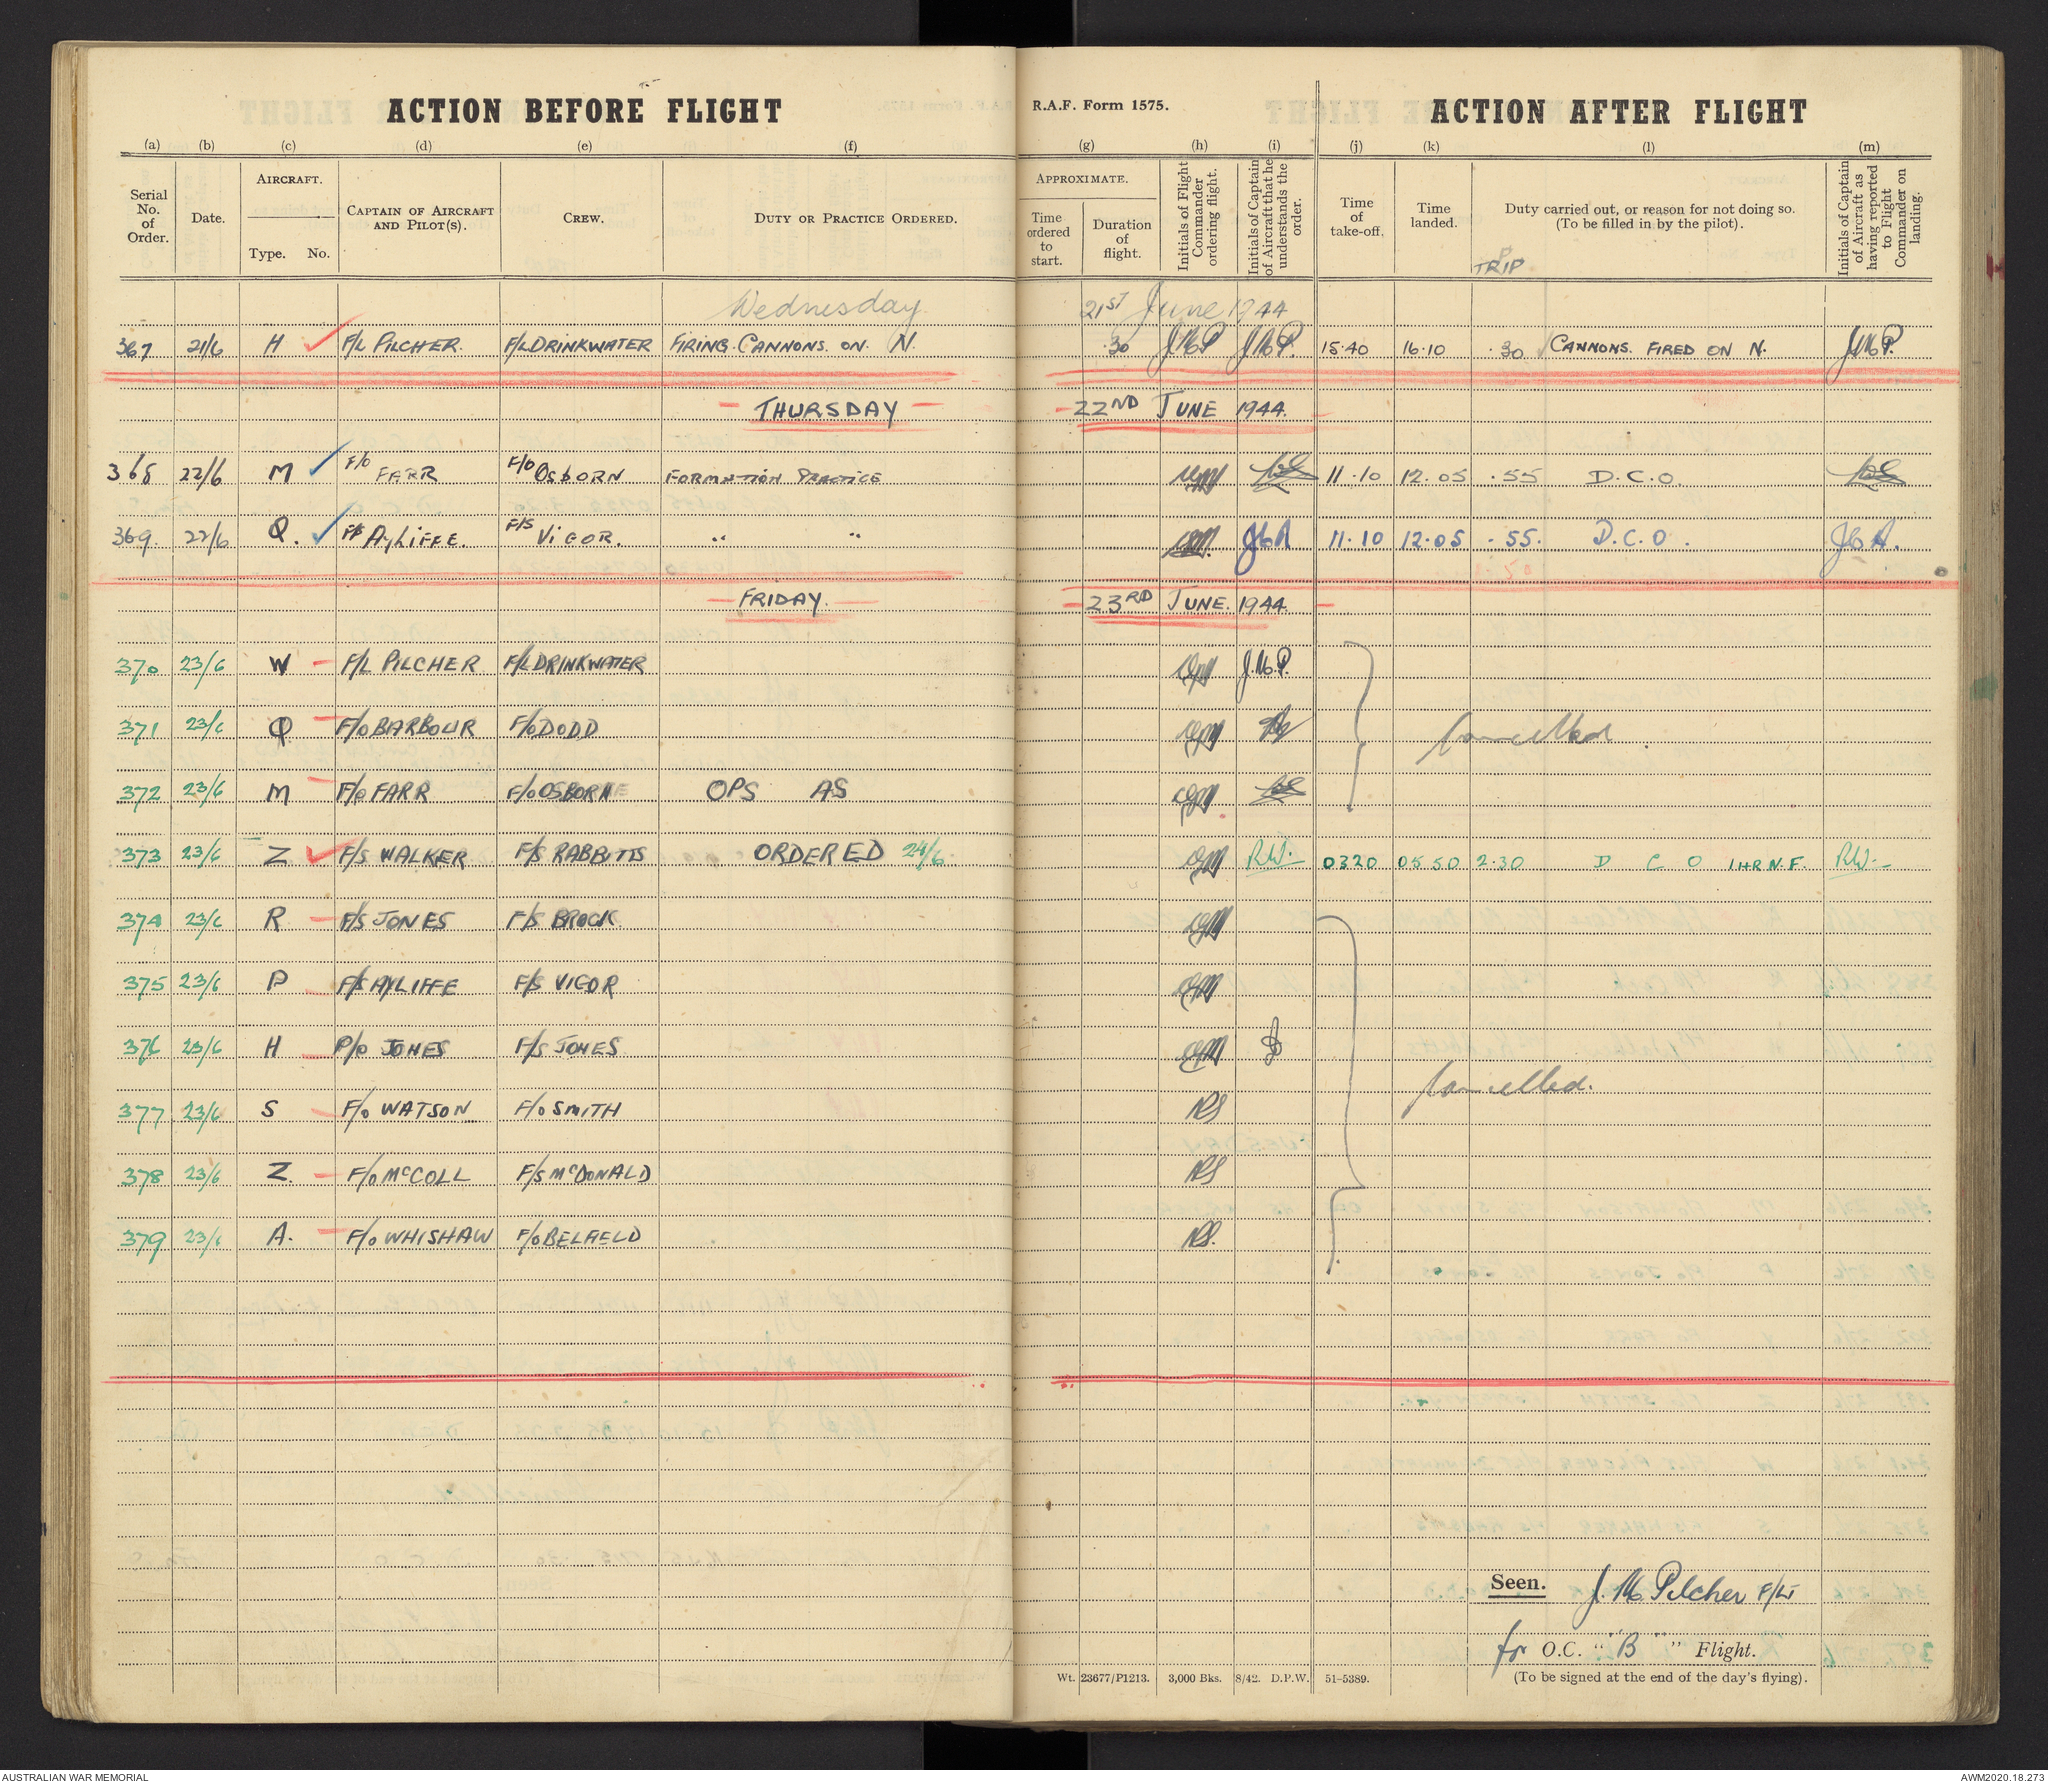 ACTION BEFORE FLIGHT
R.A.F. Form 1575.
ACTION AFTER FLIGHT
(a) (b) (c) (d) (e) (f) (g) (h) (i) (j) (k) (l) (m)
Serial No. of Order.
Date.
AIRCRAFT.
Type. No.
CAPTAIN OF AIRCRAFT AND PILOT(S).
CREW.
DUTY OR PRACTICE ORDERED.
APPROXIMATE.
Time ordered to start.
Duration of flight.
Initials of Flight Commander ordering flight.
Initials of Captain of Aircraft that he understands the order.
Time of take-off.
Time landed.
Duty carried out, or reason for not doing so. (To be filled in by the pilot).
TRIP
Initials of Captain of Aircraft as having reported to Flight Commander on landing.
Wednesday 21ST June 1944
367 21/6 H F/L PILCHER. F/L DRINKWATER FIRING CANNONS. ON. N. .30 J.M.P J.M.P. 15.40 16.10 .30 CANNONS. FIRED ON N. J.M.P.
THURSDAY 22ND JUNE 1944.
368 22/6 M F/O FARR F/O OSBORN FORMATION PRACTICE 11.10 12.05 .55 D.C.O
369. 22/6 Q. F/S AYLIFFE. F/S VIGOR. " " JCA 11.10 12.05 .55. D.C.O. JCA.
FRIDAY. 23RD JUNE. 1944
370 23/6 W F/L PILCHER F/L DRINKWATER J.M.P.
371 23/6 Q F/O BARBOUR F/O DODD Cancelled
372 23/6 M F/O FARR F/O OSBORNE OPS AS
373 23/6 Z F/S WALKER F/S RABBITTS ORDERED 24/6 R.W. 0320 05.50 2.30 D C O 1 HR N.F. R.W.
374 23/6 R F/S JONES F/S BROCK.
375 23/6 P F/S AYLIFFE F/S VIGOR
376 23/6 H P/O JONES F/S JONES
377 23/6 S F/O WATSON F/O SMITH RS Cancelled.
378 23/6 Z. F/O McCOLL F/S McDONALD RS
379 23/6 A. F/O WHISHAW F/O BELFIELD RS.
Seen. J. M. Pilcher F/Lt
for O.C. "B" Flight.
Wt. 23677/P1213. 3,000 Bks. 8/42. D.P.W. 51-5389.
(To be signed at the end of the day's flying).
AUSTRALIAN WAR MEMORIAL
AWM2020.18.273